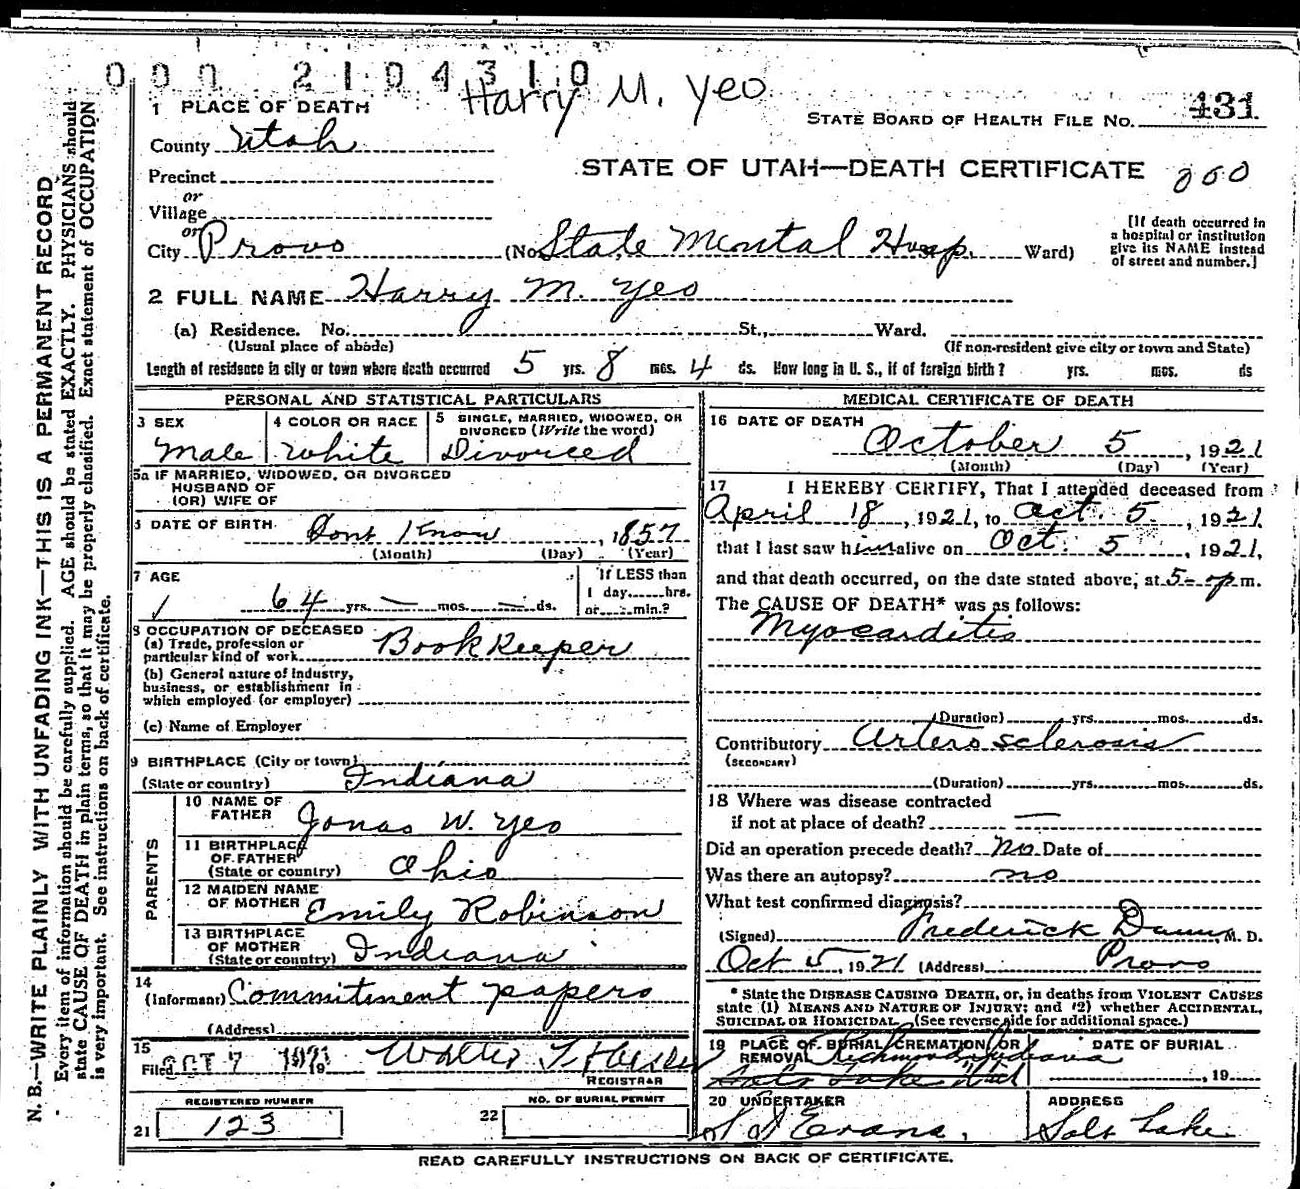 000 2104310
Harry M. Yeo
1 PLACE OF DEATH
STATE BOARD OF HEALTH FILE No. 431
County Utah
STATE OF UTAH—DEATH CERTIFICATE 200
Precinct
or
Village
or
City Provo (No. State Mental Hosp. Ward)
[If death occurred in
a hospital or institution
give its NAME instead
of street and number.]
2 FULL NAME Harry M. Yeo
(a) Residence. No. St., Ward.
(Usual place of abode) (If non-resident give city or town and State)
Length of residence in city or town where death occurred 5 yrs. 8 mos. 4 ds. How long in U. S., if of foreign birth? yrs. mos. ds
PERSONAL AND STATISTICAL PARTICULARS
3 SEX
Male
4 COLOR OR RACE
White
5 SINGLE, MARRIED, WIDOWED, OR
DIVORCED (Write the word)
Divorced
5a IF MARRIED, WIDOWED, OR DIVORCED
HUSBAND OF
(OR) WIFE OF
6 DATE OF BIRTH Dont Know, 1857
(Month) (Day) (Year)
7 AGE
64 yrs. — mos. — ds.
If LESS than
1 day......hrs.
or......min.?
8 OCCUPATION OF DECEASED
(a) Trade, profession or
particular kind of work Book Keeper
(b) General nature of industry,
business, or establishment in
which employed (or employer)
(c) Name of Employer
9 BIRTHPLACE (City or town)
(State or country) Indiana
PARENTS
10 NAME OF
FATHER Jonas W. Yeo
11 BIRTHPLACE
OF FATHER
(State or country) Ohio
12 MAIDEN NAME
OF MOTHER Emily Robinson
13 BIRTHPLACE
OF MOTHER
(State or country) Indiana
14
(Informant) Commitment papers
(Address)
15
Filed OCT 7 1921 19 Walter T.
REGISTRAR
REGISTERED NUMBER
21 123
NO. OF BURIAL PERMIT
22
MEDICAL CERTIFICATE OF DEATH
16 DATE OF DEATH
October 5, 1921
(Month) (Day) (Year)
17 I HEREBY CERTIFY, That I attended deceased from
April 18, 1921, to Oct. 5, 1921
that I last saw him alive on Oct. 5, 1921,
and that death occurred, on the date stated above, at 5- p m.
The CAUSE OF DEATH* was as follows:
Myocarditis
(Duration) yrs. mos. ds.
Contributory Artero sclerosis
(SECONDARY)
(Duration) yrs. mos. ds.
18 Where was disease contracted
if not at place of death? —
Did an operation precede death? no Date of
Was there an autopsy? no
What test confirmed diagnosis?
(Signed) Frederick Dunn, M. D.
Oct 5, 1921 (Address) Provo
* State the DISEASE CAUSING DEATH, or, in deaths from VIOLENT CAUSES
state (1) MEANS AND NATURE OF INJURY; and (2) whether ACCIDENTAL,
SUICIDAL OR HOMICIDAL. (See reverse side for additional space.)
19 PLACE OF BURIAL, CREMATION, OR
REMOVAL Richmond Indiana
Salt Lake Utah
DATE OF BURIAL
, 19
20 UNDERTAKER
Evans,
ADDRESS
Salt Lake
READ CAREFULLY INSTRUCTIONS ON BACK OF CERTIFICATE.
N. B.—WRITE PLAINLY WITH UNFADING INK—THIS IS A PERMANENT RECORD
Every item of information should be carefully supplied. AGE should be stated EXACTLY. PHYSICIANS should
state CAUSE OF DEATH in plain terms, so that it may be properly classified. Exact statement of OCCUPATION
is very important. See instructions on back of certificate.